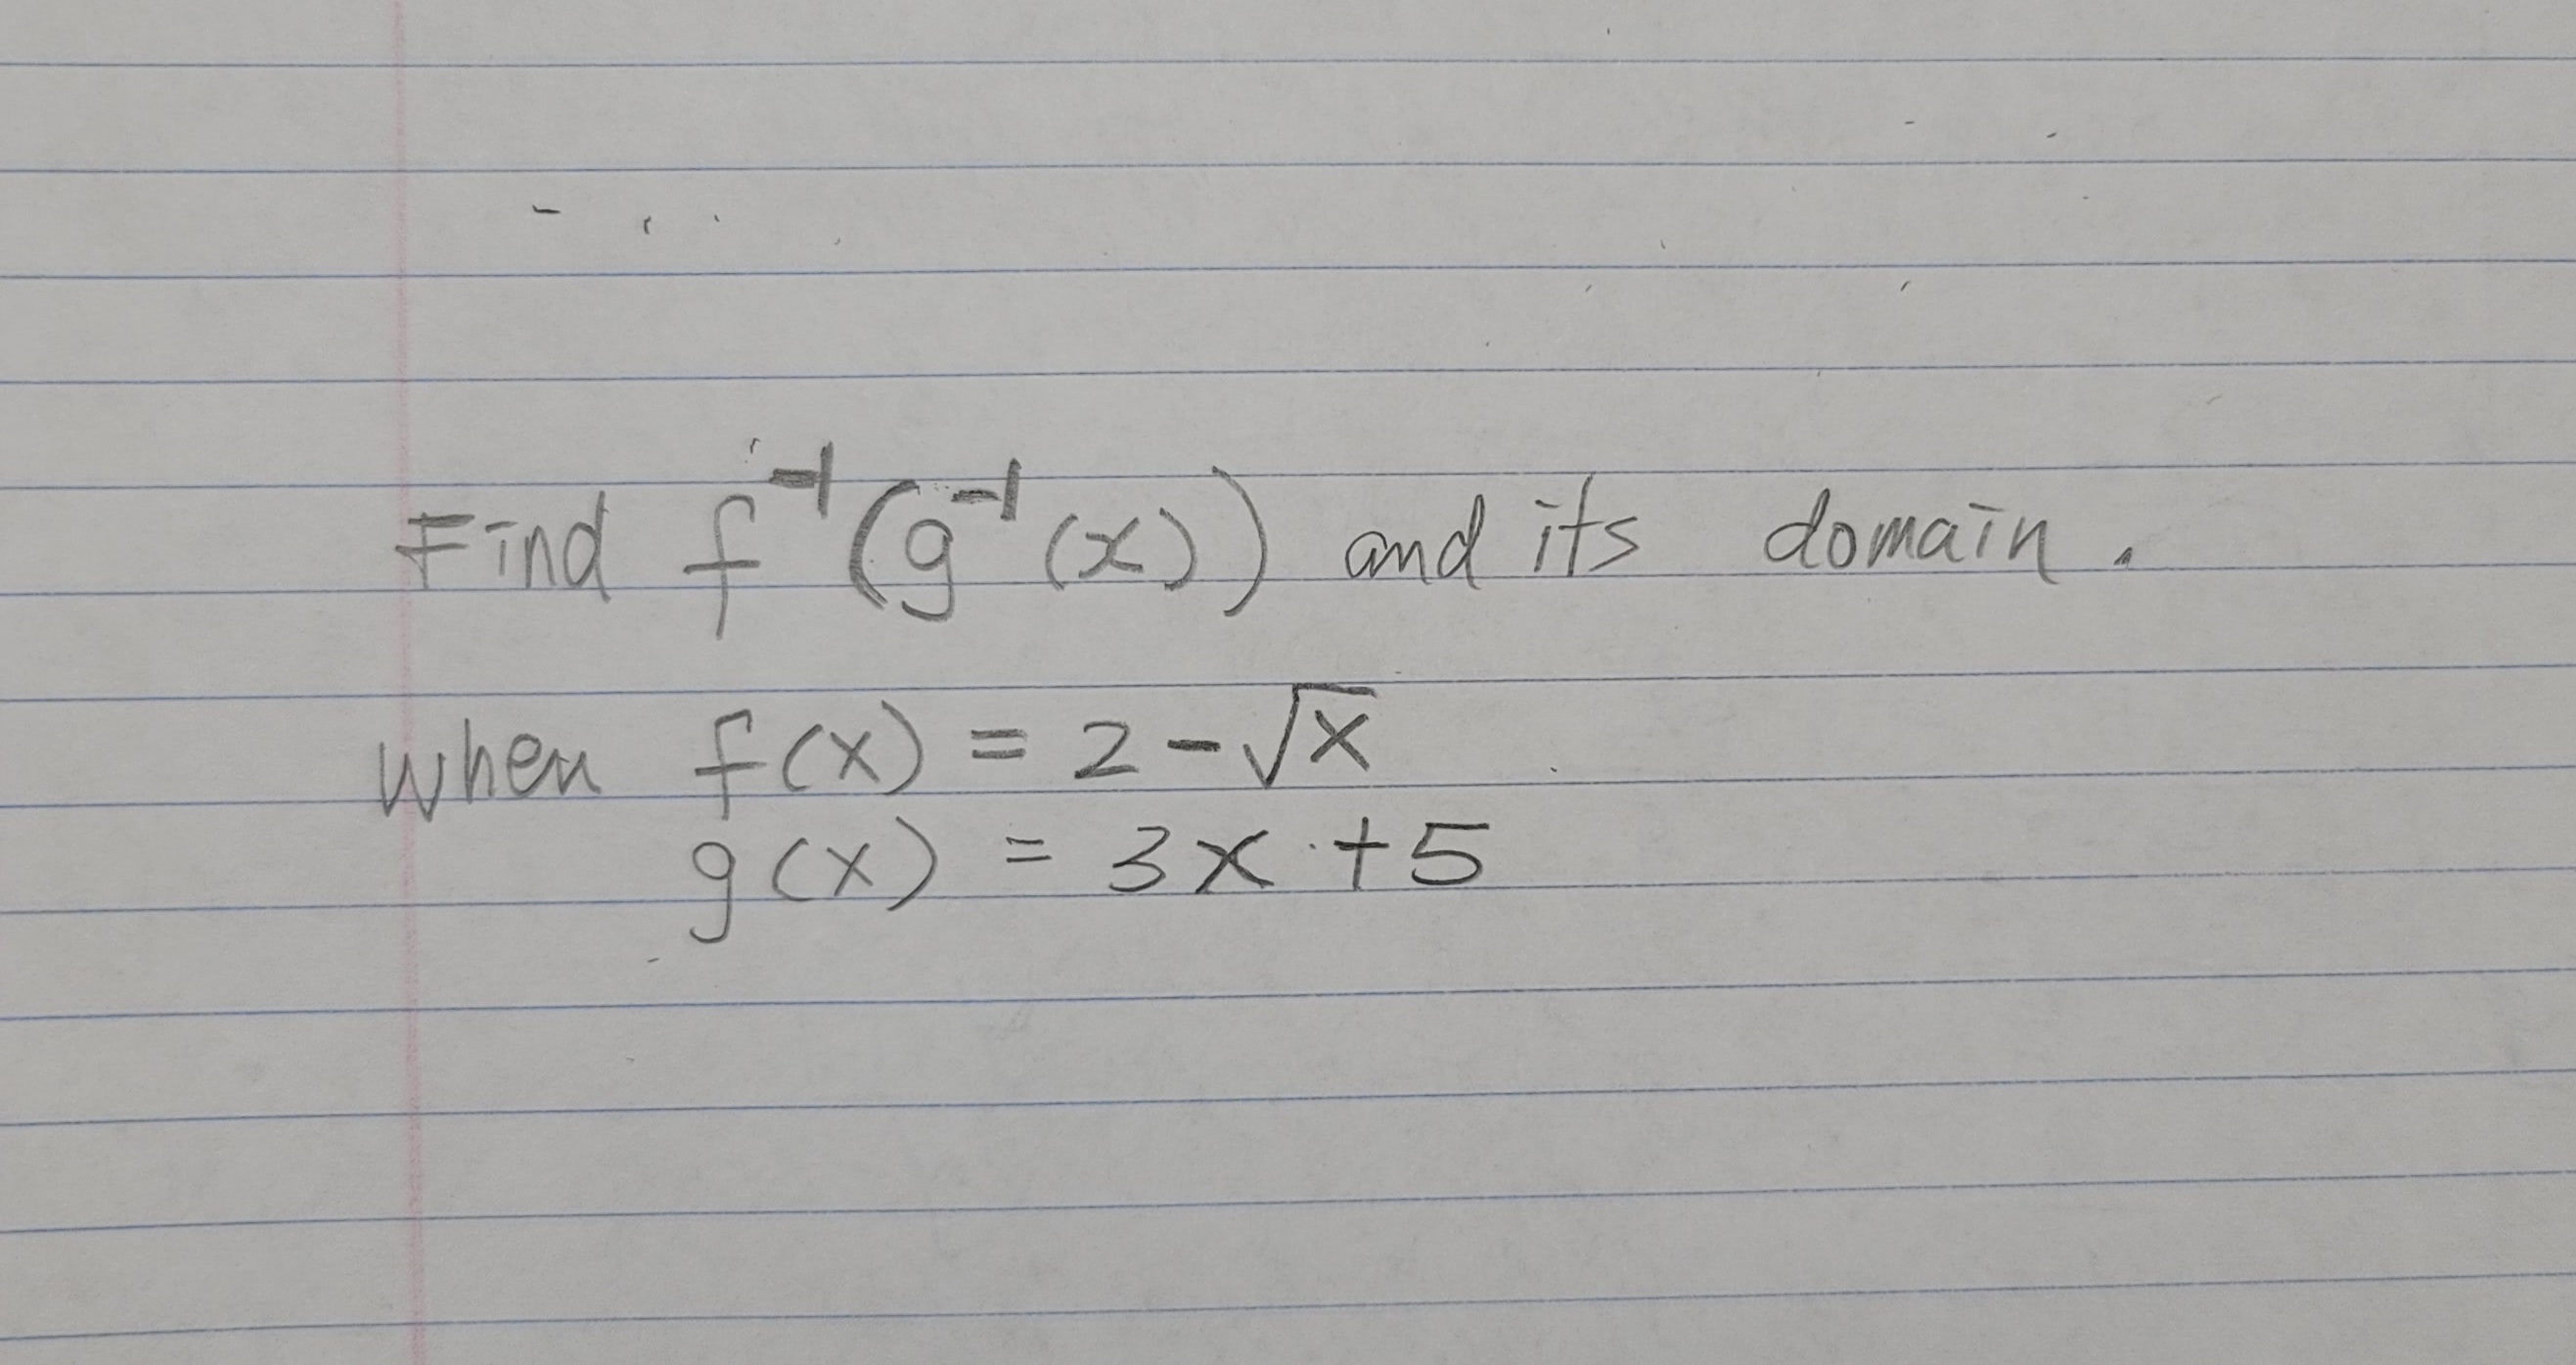 Find f⁻¹(g⁻¹(x)) and its domain.
when f(x) = 2 - √x
g(x) = 3x + 5